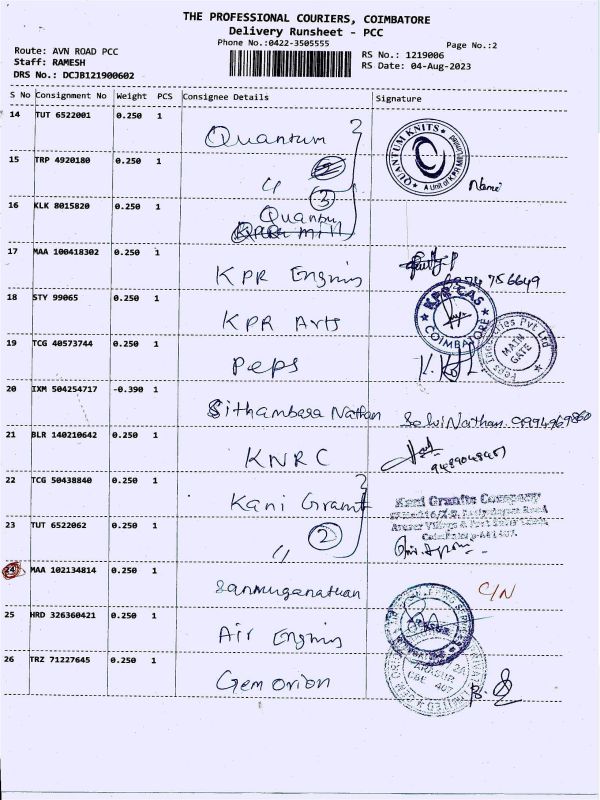 THE PROFESSIONAL COURIERS, COIMBATORE
Delivery Runsheet - PCC
Phone No.:0422-3505555
Page No.:2
Route: AVN ROAD PCC
RS No.: 1219006
Staff: RAMESH
RS Date: 04-Aug-2023
DRS No.: DCJB121900602
S No Consignment No Weight PCS Consignee Details Signature
14 TUT 6522001 0.250 1
Quantum
QUANTUM KNITS
A Unit of KPR Mill Limited
15 TRP 4920180 0.250 1
"
3
16 KLK 8015820 0.250 1
Quantum
17 MAA 100418302 0.250 1
KPR Engining
756649
18 STY 99065 0.250 1
KPR Arts
KPR CAS
COIMBATORE
19 TCG 40573744 0.250 1
Peps
Peps Industries Pvt Ltd
MAIN GATE
20 IXM 504254717 -0.390 1
Sithambara Nathan
21 BLR 140210642 0.250 1
KNRC
22 TCG 50438840 0.250 1
Kani Granit
Kani Granite Company
23 TUT 6522062 0.250 1
2
"
24 MAA 102134814 0.250 1
Sanmuganathan C/N
25 HRD 326360421 0.250 1
Air Engining
26 TRZ 71227645 0.250 1
Gem Orion
ARASUR
CBE 407